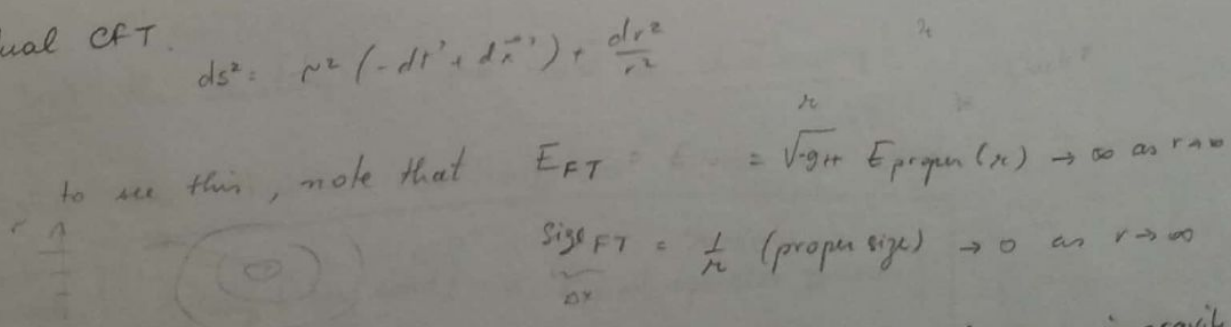 ual CFT.
ds² = r² (-dt² + dx⃗²) + dr²/r²
r
to see this, note that E_FT = = √-g_tt E_proper (r) → ∞ as r→∞
Size_FT = 1/r (proper size) → 0 as r→∞
Δx